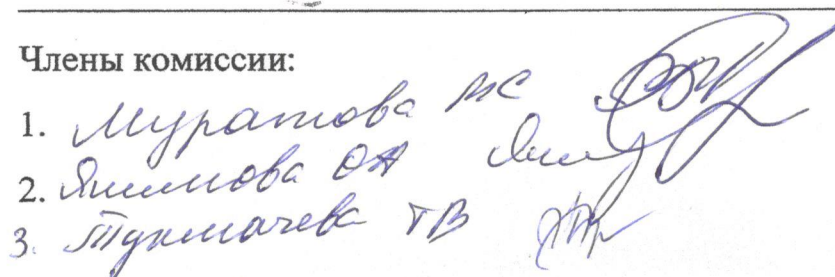 Члены комиссии:
1. Муратова МС
2. Якимова ОА
3. Тукмачева ТВ